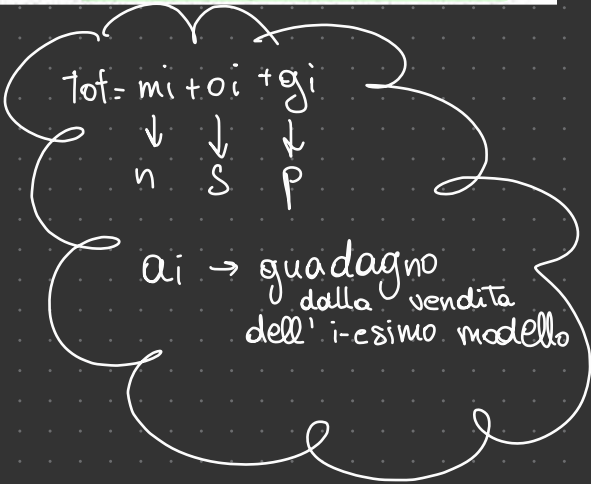 Tot = mi + oi + gi
↓ ↓ ↓
n s p
ai → guadagno
dalla vendita
dell' i-esimo modello